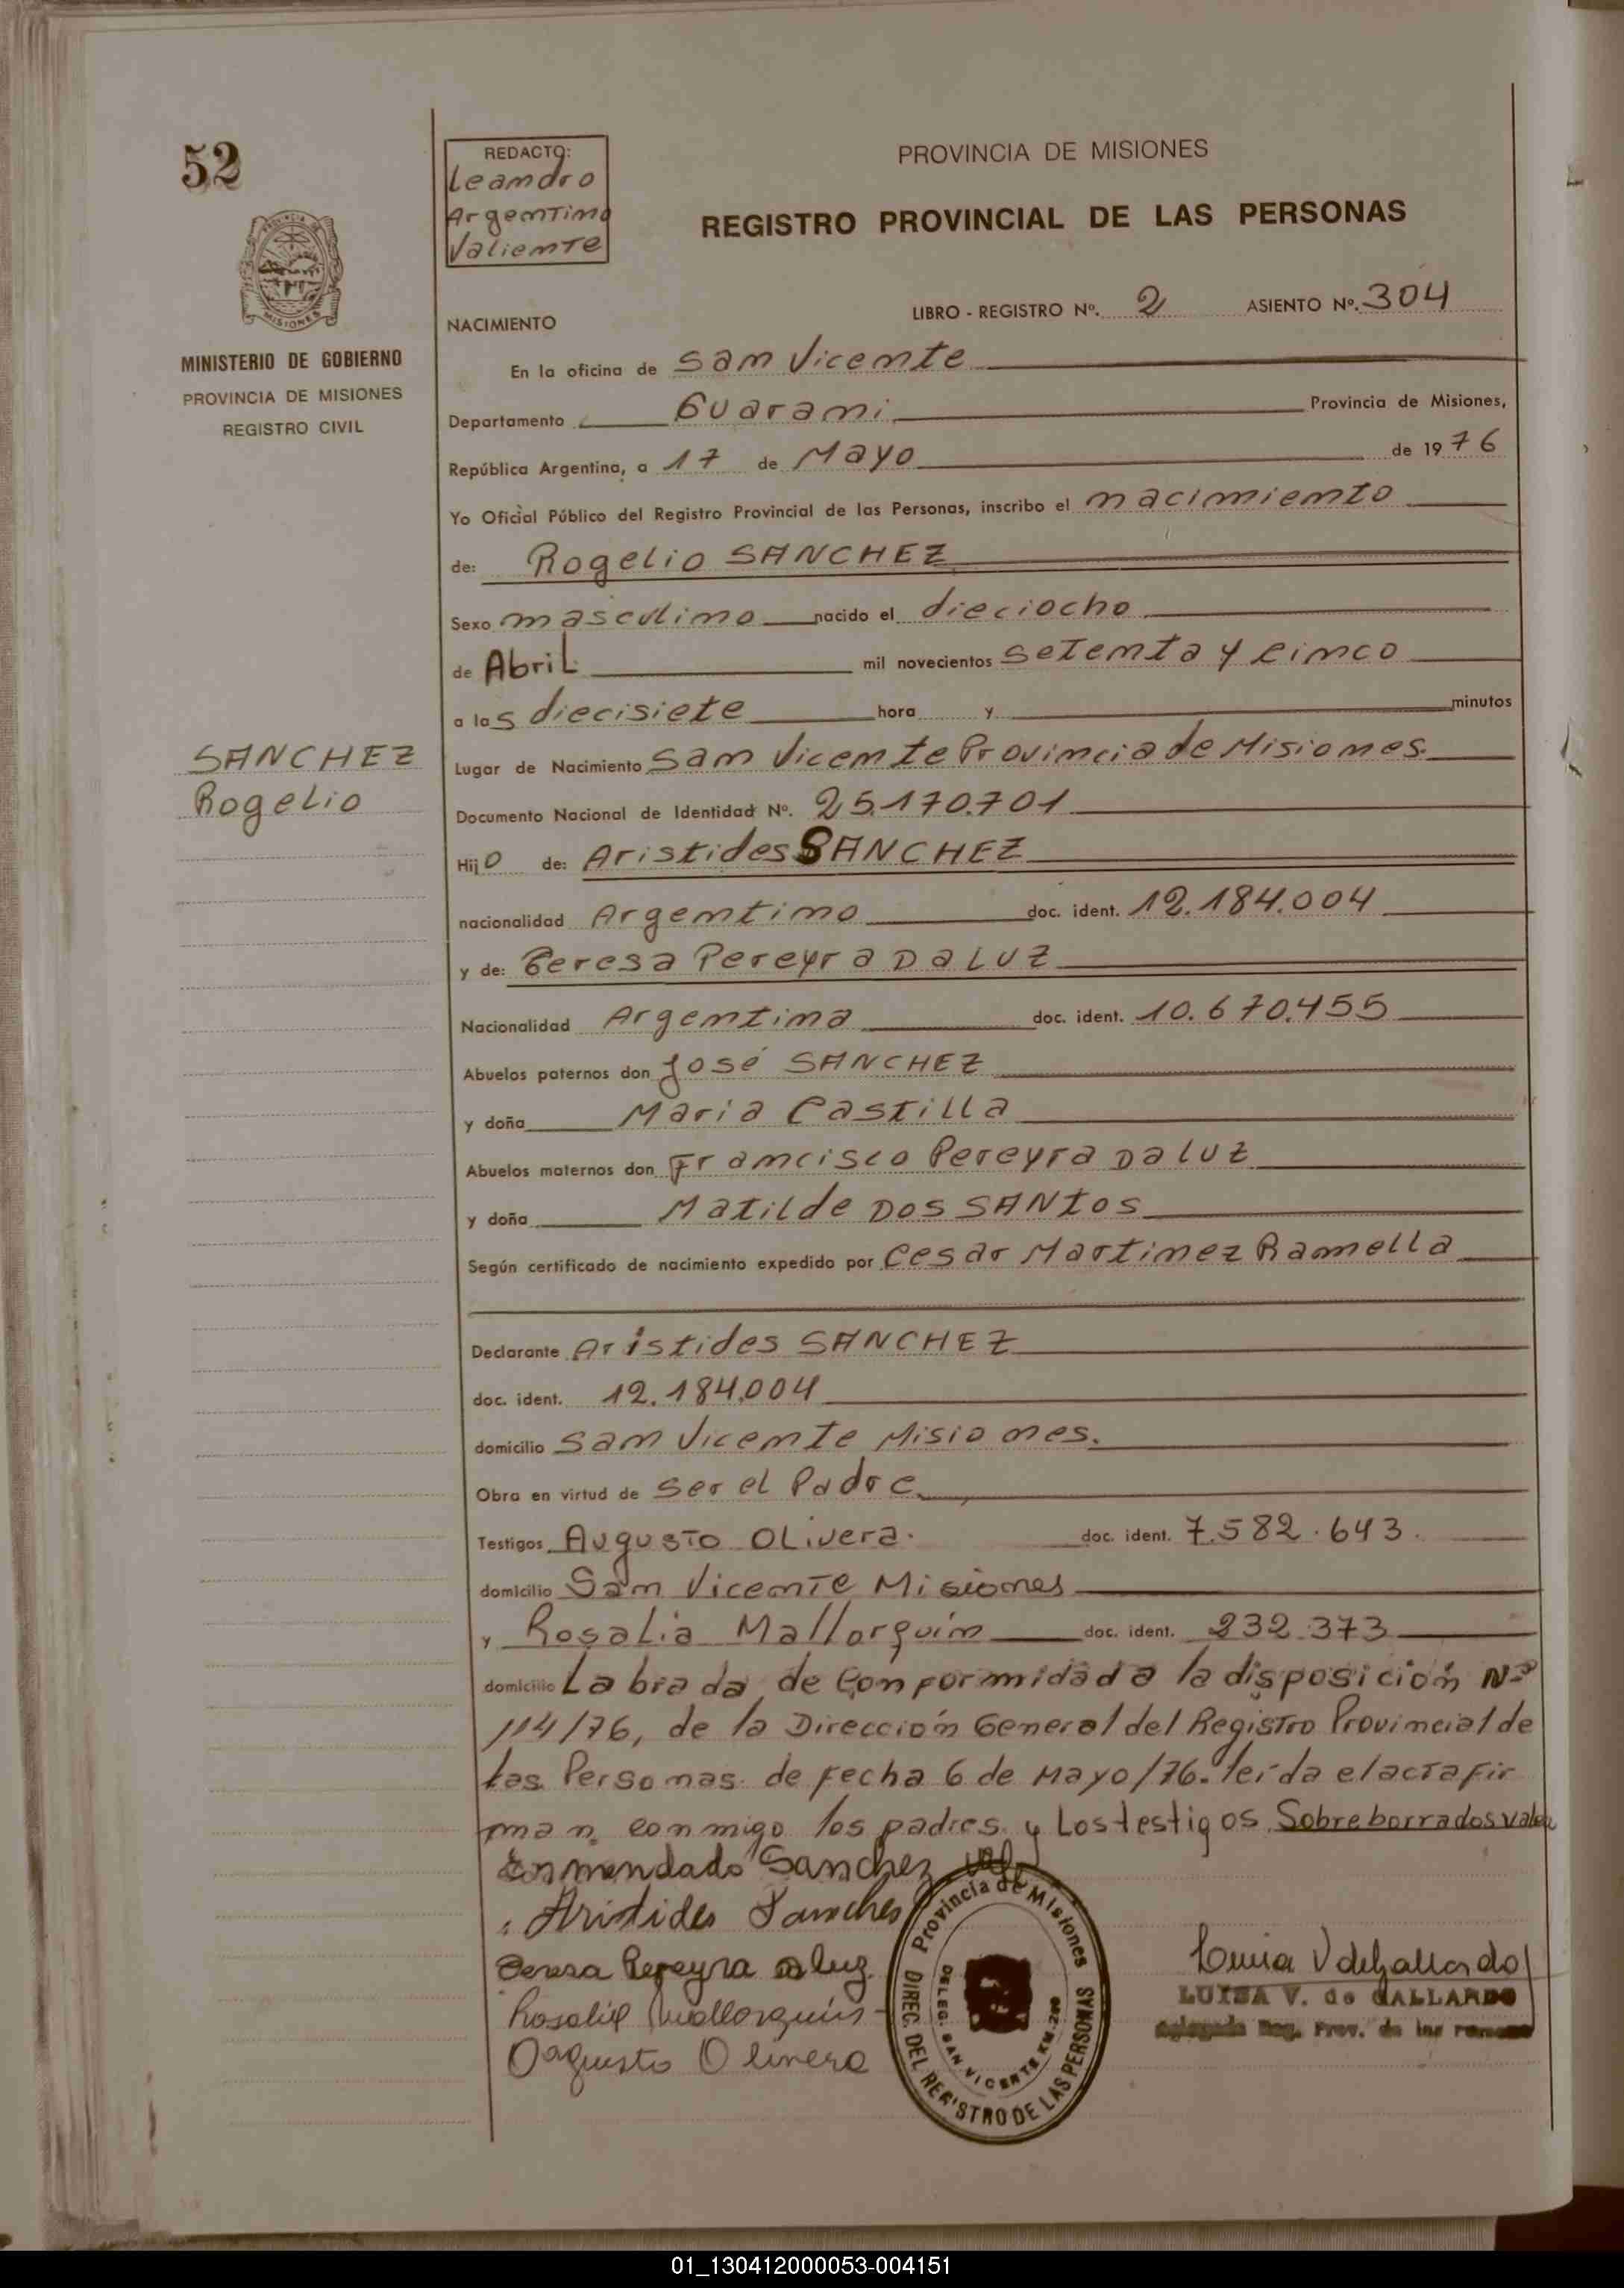 52
REDACTO:
Leandro
Argentino
Valiente
PROVINCIA DE MISIONES
REGISTRO PROVINCIAL DE LAS PERSONAS
MISIONES
MINISTERIO DE GOBIERNO
PROVINCIA DE MISIONES
REGISTRO CIVIL
LIBRO - REGISTRO Nº. 2 ASIENTO Nº. 304
NACIMIENTO
En la oficina de San Vicente
Departamento Guarani Provincia de Misiones,
República Argentina, a 17 de Mayo de 1976
Yo Oficial Público del Registro Provincial de las Personas, inscribo el nacimiento
de: Rogelio SANCHEZ
Sexo masculino nacido el dieciocho
de Abril mil novecientos setenta y cinco
a las diecisiete hora y minutos
SANCHEZ
Rogelio
Lugar de Nacimiento San Vicente Provincia de Misiones.
Documento Nacional de Identidad Nº. 25.170.701
Hijo de: Aristides SANCHEZ
nacionalidad Argentino doc. ident. 12.184.004
y de: Teresa Pereyra Da LUZ
Nacionalidad Argentina doc. ident. 10.670.455
Abuelos paternos don José SANCHEZ
y doña Maria Castilla
Abuelos maternos don Francisco Pereyra Da LUZ
y doña Matilde DOS SANtos
Según certificado de nacimiento expedido por Cesar Martinez Ramella
Declarante Aristides SANCHEZ
doc. ident. 12.184.004
domicilio San Vicente Misiones.
Obra en virtud de Ser el Padre
Testigos Augusto Olivera. doc. ident. 7.582.643.
domicilio San Vicente Misiones
y Rosalia Mallorquin doc. ident. 232.373
domicilio Labrada de Conformidad a la disposición Nº
114/76, de la Dirección General del Registro Provincial de
las Personas de fecha 6 de Mayo/76. leida el acta fir
man conmigo los padres y Los testigos Sobreborrados valen
Enmendado Sanchez vale
Aristides Sanches
Teresa Pereyra Da luz
Rosalia Mallorquin
Augusto Olivera
Provincia de Misiones
DIREC. DEL REGISTRO DE LAS PERSONAS
DELEG. SAN VICENTE KM.
Luisa V de Gallardo
LUISA V. de GALLARDO
Delegada Reg. Prov. de las Personas
01_130412000053-004151